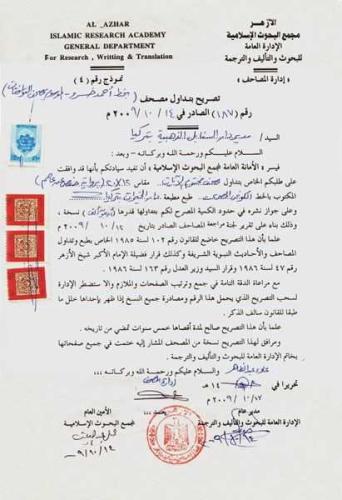 AL _AZHAR
ISLAMIC RESEARCH ACADEMY
GENERAL DEPARTMENT
For Research , Writting & Translation
الأزهر
مجمع البحوث الإسلامية
الإدارة العامة
للبحوث والتأليف والترجمة
« إدارة المصاحف »
نموذج رقم (٤)
تصريح بتداول مصحف
رقم (١٨٧) الصادر في ١٤ / ١٠ / ٢٠٠٩ م
السيد / مدير دار السنابل الذهبية بتركيا
السلام عليكم ورحمة الله وبركاته – وبعد :
فيسر « الأمانة العامة لمجمع البحوث الإسلامية » أن تفيد سيادتكم بأنها قد وافقت
على طلبكم الخاص بتداول مقاس
المكتوب بالخط طبع مطبعة
وعلى جواز نشره في حدود الكمية المصرح لكم بتداولها قدرها نسخة ،
وذلك بناء على تقرير لجنة مراجعة المصاحف الصادر بتاريخ / ١٠ / ٢٠٠٩ م .
علما بأن هذا التصريح خاضع للقانون رقم ١٠٢ لسنة ١٩٨٥ الخاص بطبع وتداول
المصاحف والأحاديث النبوية الشريفة وكذلك قرار فضيلة الإمام الأكبر شيخ الأزهر
رقم ٤٧ لسنة ١٩٨٦ وقرار السيد وزير العدل رقم ١٦٣ لسنة ١٩٨٦ .
مع مراعاة الدقة التامة في جمع وترتيب الصفحات والملازم وإلا ستضطر الإدارة
لسحب التصريح الذي يحمل هذا الرقم ومصادرة جميع النسخ إذا ظهر بإحداها خلل ما
طبقا للقانون سالف الذكر .
علما بأن هذا التصريح صالح لمدة أقصاها خمس سنوات تمضي من تاريخه .
ومرافق لهذا التصريح نسخة من المصحف المشار إليه ختمت في جميع صفحاتها
بخاتم الإدارة العامة للبحوث والتأليف والترجمة .
والسلام عليكم ورحمة الله وبركاته ،،،
تحريرا في / / ١٤ هـ
/ ١٠ / ٢٠٠٩ م
مدير عام
الإدارة العامة للبحوث والتأليف والترجمة
الأمين العام
لمجمع البحوث الإسلامية